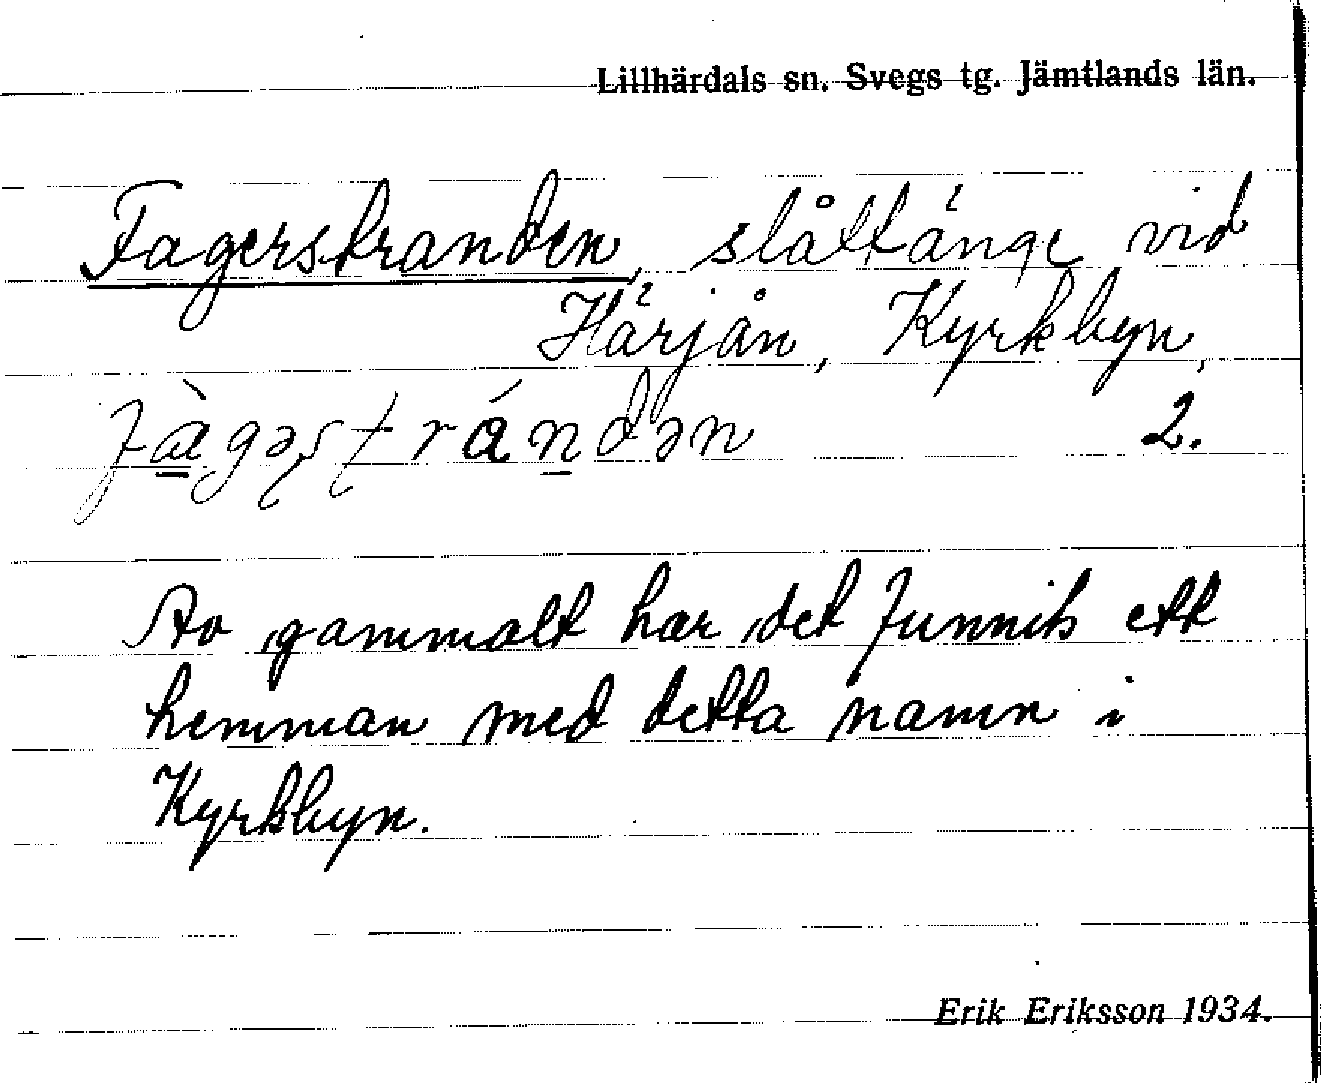 Lillhärdals sn. Svegs tg. Jämtlands län.
Fagerstranden, slåttänge vid
Härjån, Kyrkbyn,
2.
Av gammalt har det funnits ett
hemman med detta namn i
Kyrkbyn.
Erik Eriksson 1934.